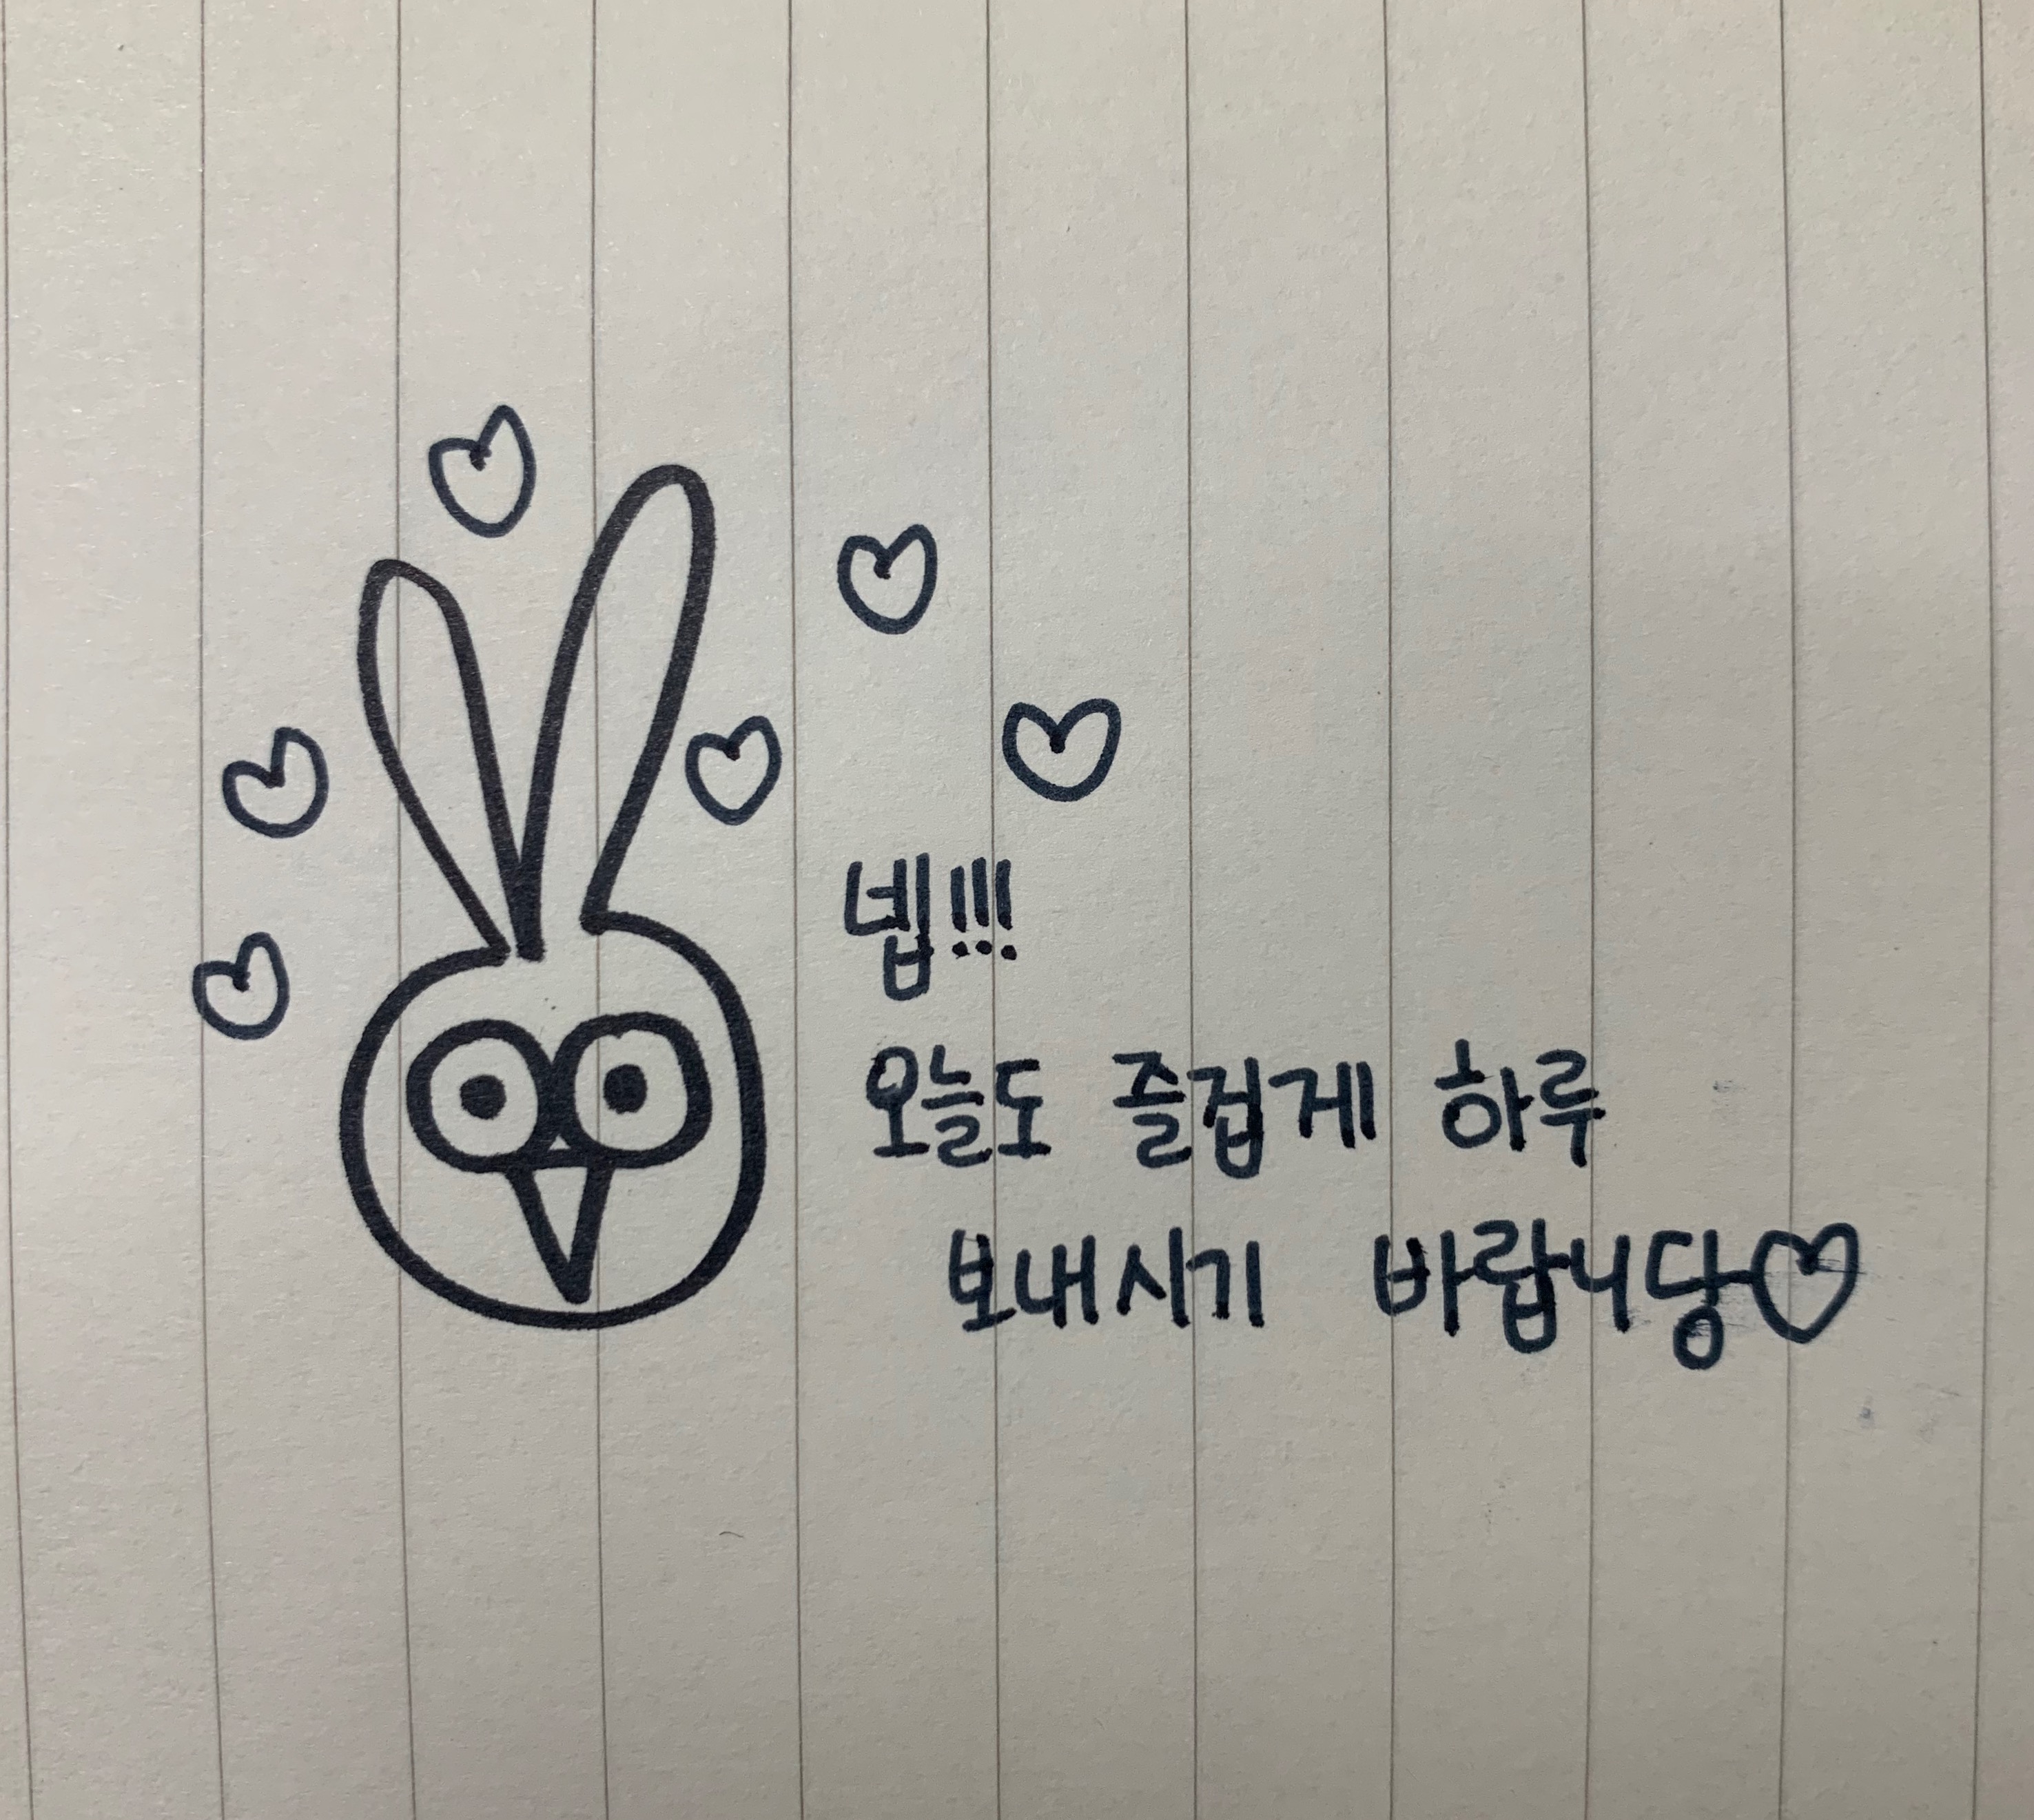 넵!!!
오늘도 즐겁게 하루
보내시기 바랍니당♡